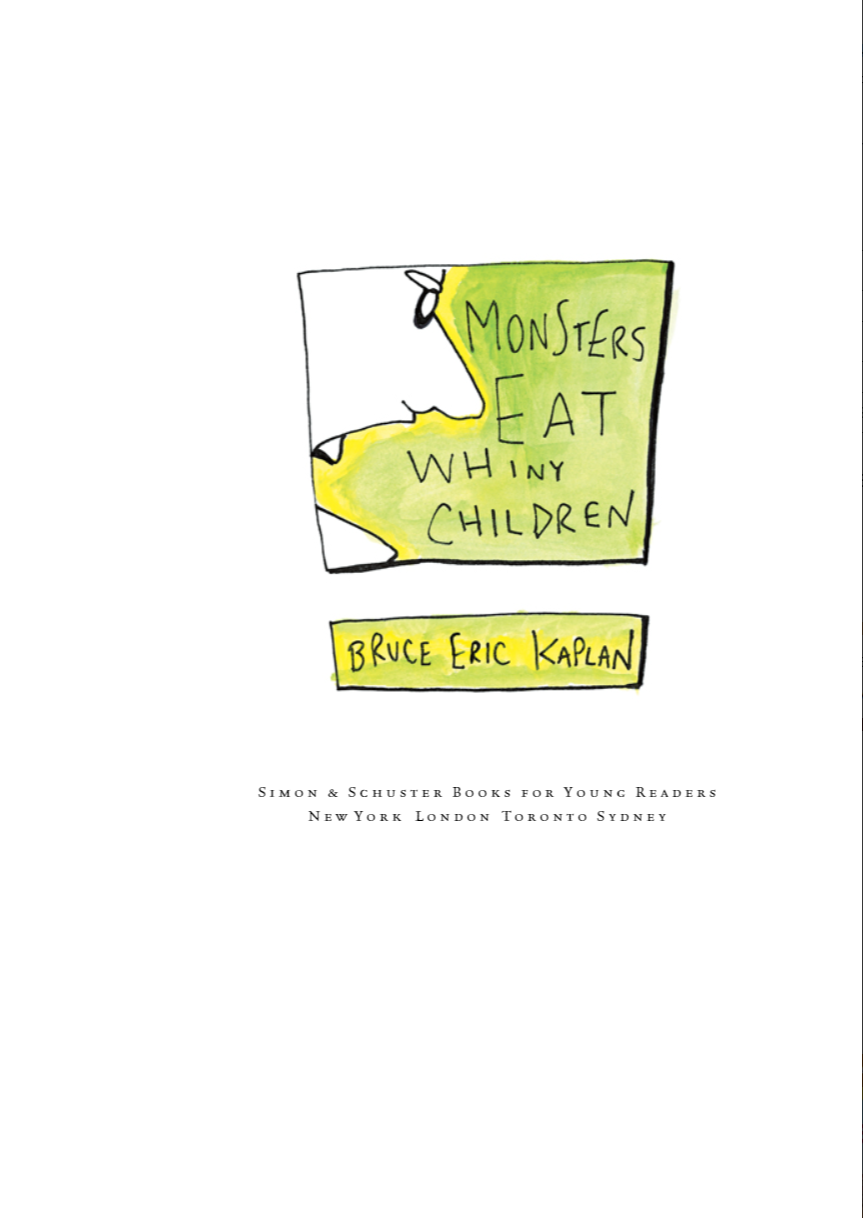 MONSTERS
EAT
WHINY
CHILDREN
BRUCE ERIC KAPLAN
SIMON & SCHUSTER BOOKS FOR YOUNG READERS
NEW YORK LONDON TORONTO SYDNEY